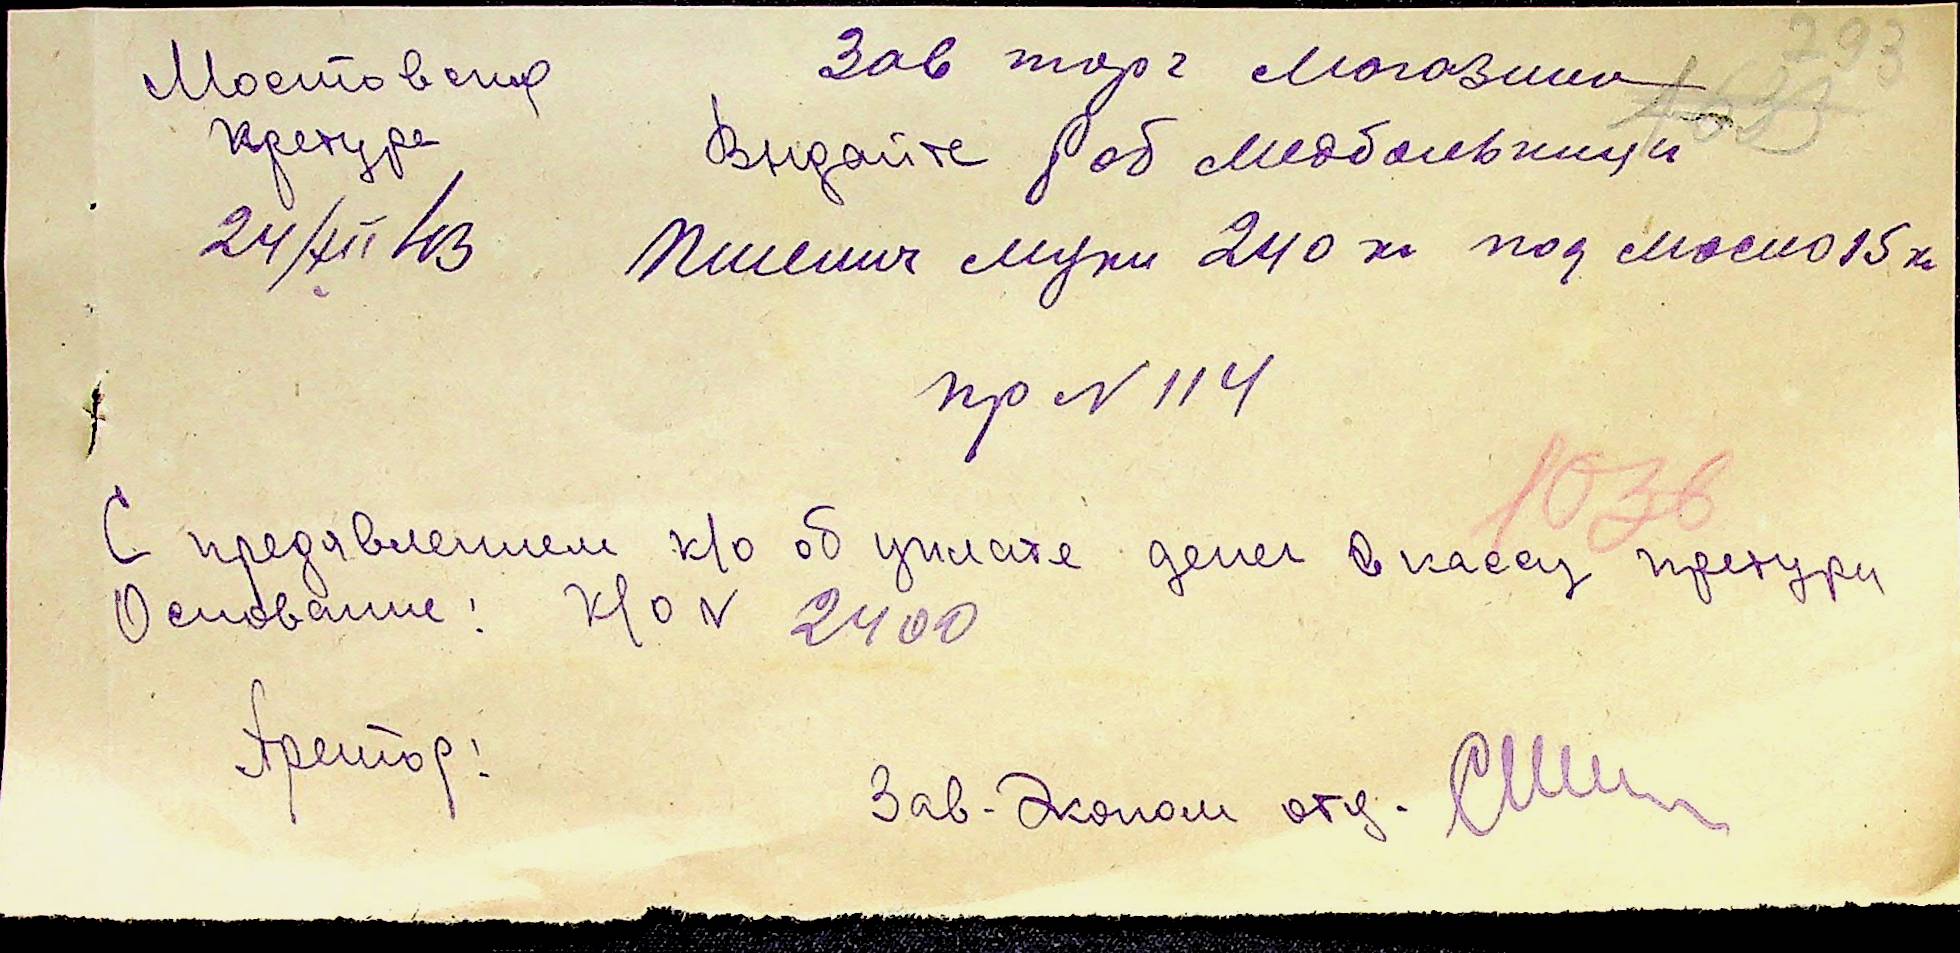 793
Мостовская Зав торг магазина
претура Выдайте раб Медбольници
24/XII 43 Пшенич муки 240 кг под масло 15 кг
пр N 114
1036
С предявлением к/о об уплате денег в кассу претури
Основание! К/О N 2400
Претор!
Зав-Эконом отд.